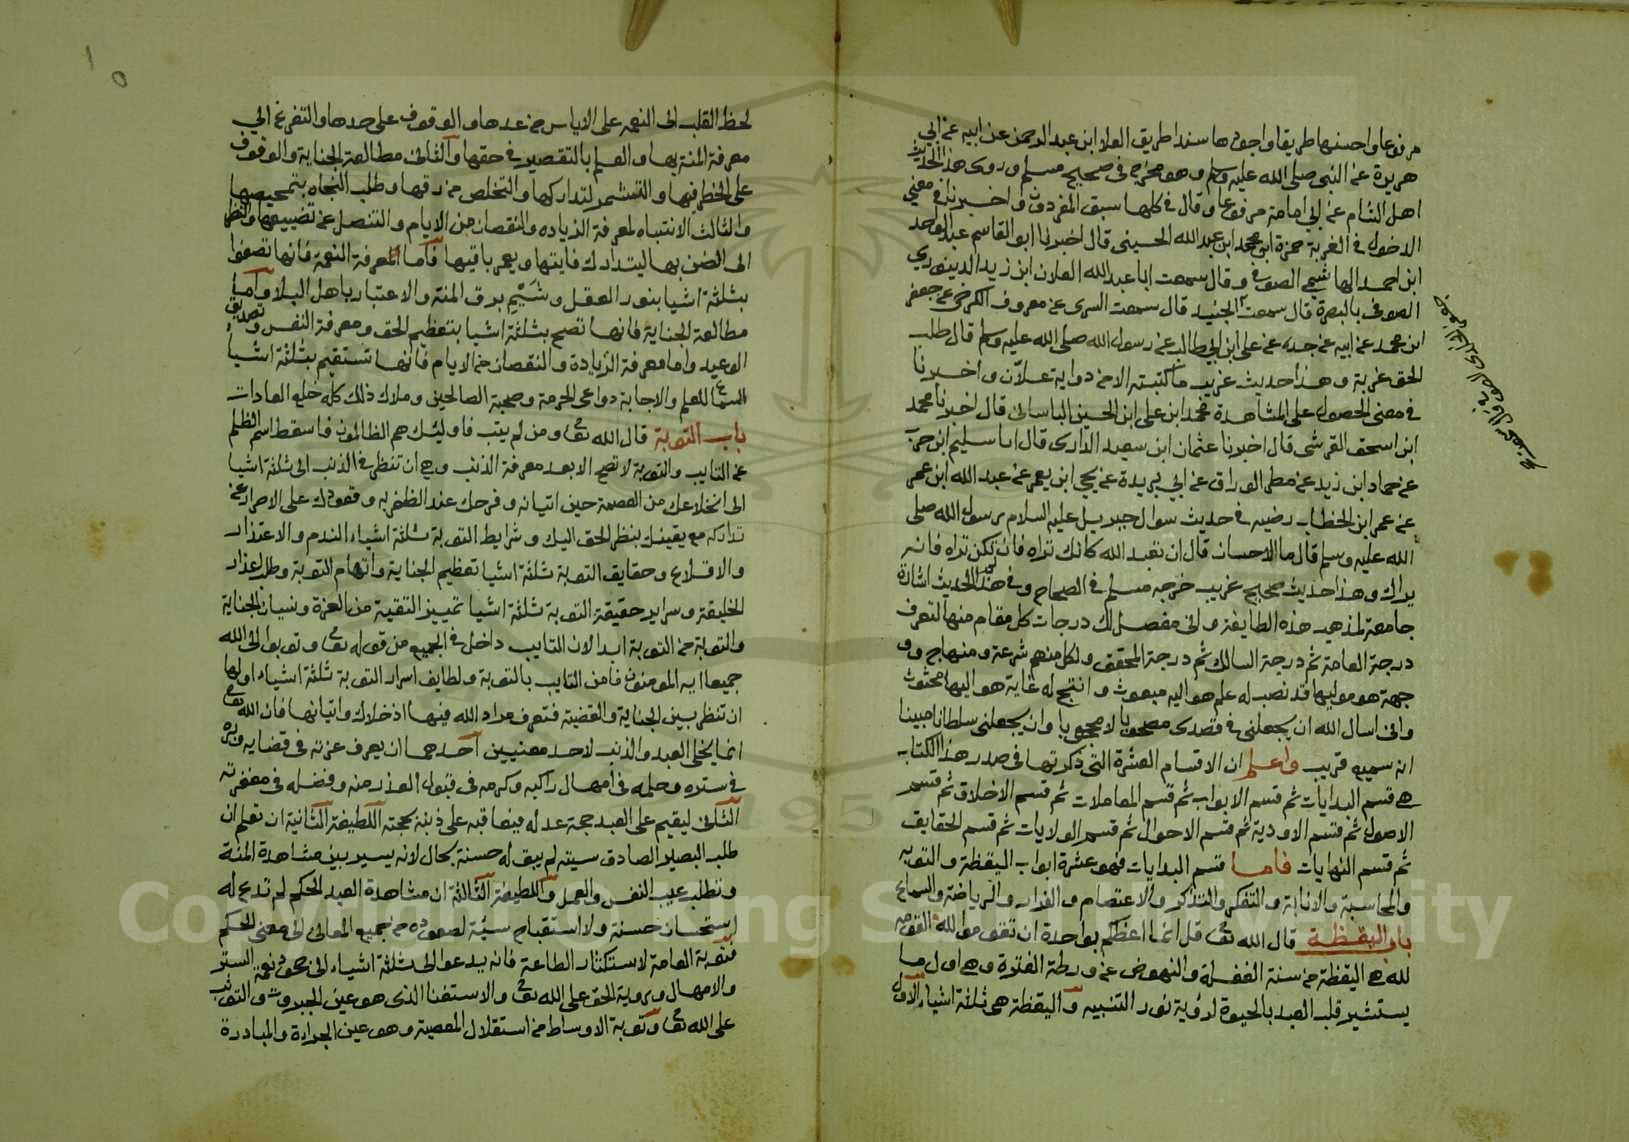 مرفوعا واحسنها طريقا واجودها سندا طريق العلا ابن عبد الرحمن عن ابيه عن ابي
هريرة عن النبي صلى الله عليه وسلم وهو مخرج في صحيح مسلم وروى هذا الحديث
اهل الشام عن ابي امامة مرفوعا وقال في كلها سبق المفردون واخبرنا في معنى
الدخول في الغربة حمزة ابن محمد ابن عبد الله الحسيني قال اخبرنا ابو القاسم عبد الواحد
ابن احمد الهاشمي الصوفي وقال سمعت ابا عبد الله العلان ابن زيد الدينوري
الصوفي بالبصرة قال سمعت الجنيد قال سمعت السرى عن معروف الكرخي عن جعفر
ابن محمد عن ابيه عن جده عن علي ابن ابي طالب عن رسول الله صلى الله عليه وسلم قال طلب
الحق غربة وهذا حديث غريب ما كتبته الا من رواية علان واخبرنا
في معنى الحصول على المشاهدة محمد ابن علي ابن الحسن الباساني قال اخبرنا محمد
ابن اسحق القرشي قال اخبرنا عثمان ابن سعيد الدارى قال انا سليم ابن حرب
عن حماد ابن زيد عن مطر الوراق عن ابي بريدة عن يحيى ابن يعمر عن عبد الله ابن عمر
عن عمر ابن الخطاب رضيه في حديث سوال جبريل عليه السلام رسول الله صلى
الله عليه وسلم قال ما الاحسان قال ان تعبد الله كانك تراه فان لم تكن تراه فانه
يراك وهذا حديث صحيح غريب خرجه مسلم في الصحاح وفي هذا الحديث اشارة
جامعة لمذهب هذه الطايفة واني مفصل لك درجات كل مقام منها لتعرف
درجة العامة ثم درجة السالك ثم درجة المحقق ولكل منهم شرعة ومنهاج و
جهة هو موليها قد نصب له علم هو اليه مبعوث و له غاية هو اليها محثوث
واني اسال الله ان يجعلني في قصدي مصحوبا لا محجوبا وان يجعلني سلطانا مبينا
انه سميع قريب واعلم ان الاقسام العشرة التي ذكرتها في صدر هذا الكتاب
هي قسم البدايات ثم قسم الابواب ثم قسم المعاملات ثم قسم الاخلاق ثم قسم
الاصول ثم قسم الاودية ثم قسم الاحوال ثم قسم الولايات ثم قسم الحقايق
ثم قسم النهايات فاما قسم البدايات فهو عشرة ابواب اليقظة والتوبه
والمحاسبة والانابة والتفكر والتذكر والاعتصام والفرار والرياضة والسماع
باب اليقظة قال الله تعا قل انما اعظكم بواحدة ان تقوموا لله القومه
لله هي اليقظة من سنة الغفلة والنهوض عن ورطة الفترة وهي اول ما
يستنير قلب العبد بالحيوة لروية نور التنبيه واليقظة هي ثلثة اشياء الاول
لحظ القلب الى النعمه على الاياس من عدها والوقوف على حدها والتفرغ الي
معرفة المنة بها والعلم بالتقصير في حقها والثاني مطالعة الجناية والوقوف
على الخطر فيها والتشمر لتداركها والتخلص من رقها وطلب النجاه بتمحيصها
والثالث الانتباه لمعرفة الزياده والنقصان من الايام والتنصل عن تضييعها والنظر
الى الضن بها ليتدارك فايتها ويعمر باقيها فاما معرفة النعمة فانها تصفوا
بثلثة اشيا بنور العقل وشيم برق المنة والاعتبار باهل البلا واما
مطالعة الجناية فانها تصح بثلثة اشيا بتعظيم الحق ومعرفة النفس وتصديق
الوعيد واما معرفة الزيادة والنقصان من الايام فانها تستقيم بثلثة اشيا
السماع للعلم والاجابة دواعي الحرمة وصحبة الصالحين وملاك ذلك كله خلع العادات
باب التوبة قال الله تعا ومن لم يتب فاوليك هم الظالمون فاسقط اسم الظلم
عن التايب والتوبة لا تصح الا بعد معرفة الذنب وهي ان تنظر في الذنب الى ثلثة اشيا
الى انخلاعك من العصمة حين اتيانه وفرحك عند الظفر به وقعودك على الاصرار عن
تداركه مع يقينك بنظر الحق اليك وشرايط التوبة ثلثة اشياء الندم والاعتذار
والاقلاع وحقايق التوبة ثلثة اشيا تعظيم الجناية واتهام التوبة وطلب اعذار
الخليقة وسراير حقيقة التوبة ثلثة اشيا تمييز التقية من العزة ونسيان الجناية
والتوبة من التوبة ابدا لان التايب داخل في الجميع من قوله تعا وتوبوا الى الله
جميعا ايه المومنون فامن التايب بالتوبة ولطايف اسرار التوبة ثلثة اشياء اولها
ان تنظر بين الجناية والقضية فتعرف مراد الله فيها اذ خلاك واتيانها فان الله تعا
انما يخلى العبد والذنب لاحد معنيين احدهما ان يعرف عزته في قضايه وبره
في ستره وحلمه في امهال راكبه وكرمه في قبول العذر منه وفضله في مغفرته
الثاني ليقيم على العبد حجة عدله فيعاقبه على ذنبه بحجته اللطيفة الثانية ان تعلم ان
طلب البصير الصادق سيئته لم يبق له حسنة بحال لانه يسير بين مشاهدة المنة
وتطلب عيب النفس والعمل واللطيفة الثالثة ان مشاهدة العبد الحكم لم تدع له
استحسان حسنة ولا استقباح سيئة لصعوده من جميع المعاني الى معنى الحكم
فتوبة العامة لاستكثار الطاعة فانه يدعو الى ثلثة اشياء الى جحود نعمة الستر
والامهال وروية الحق على الله تعا والاستغنا الذي هو عين الجبروت والتوثب
على الله تعا وتوبة الاوساط من استقلال المعصية وهو عين الجراءة والمبادرة
Copyright © King Saud University
1957